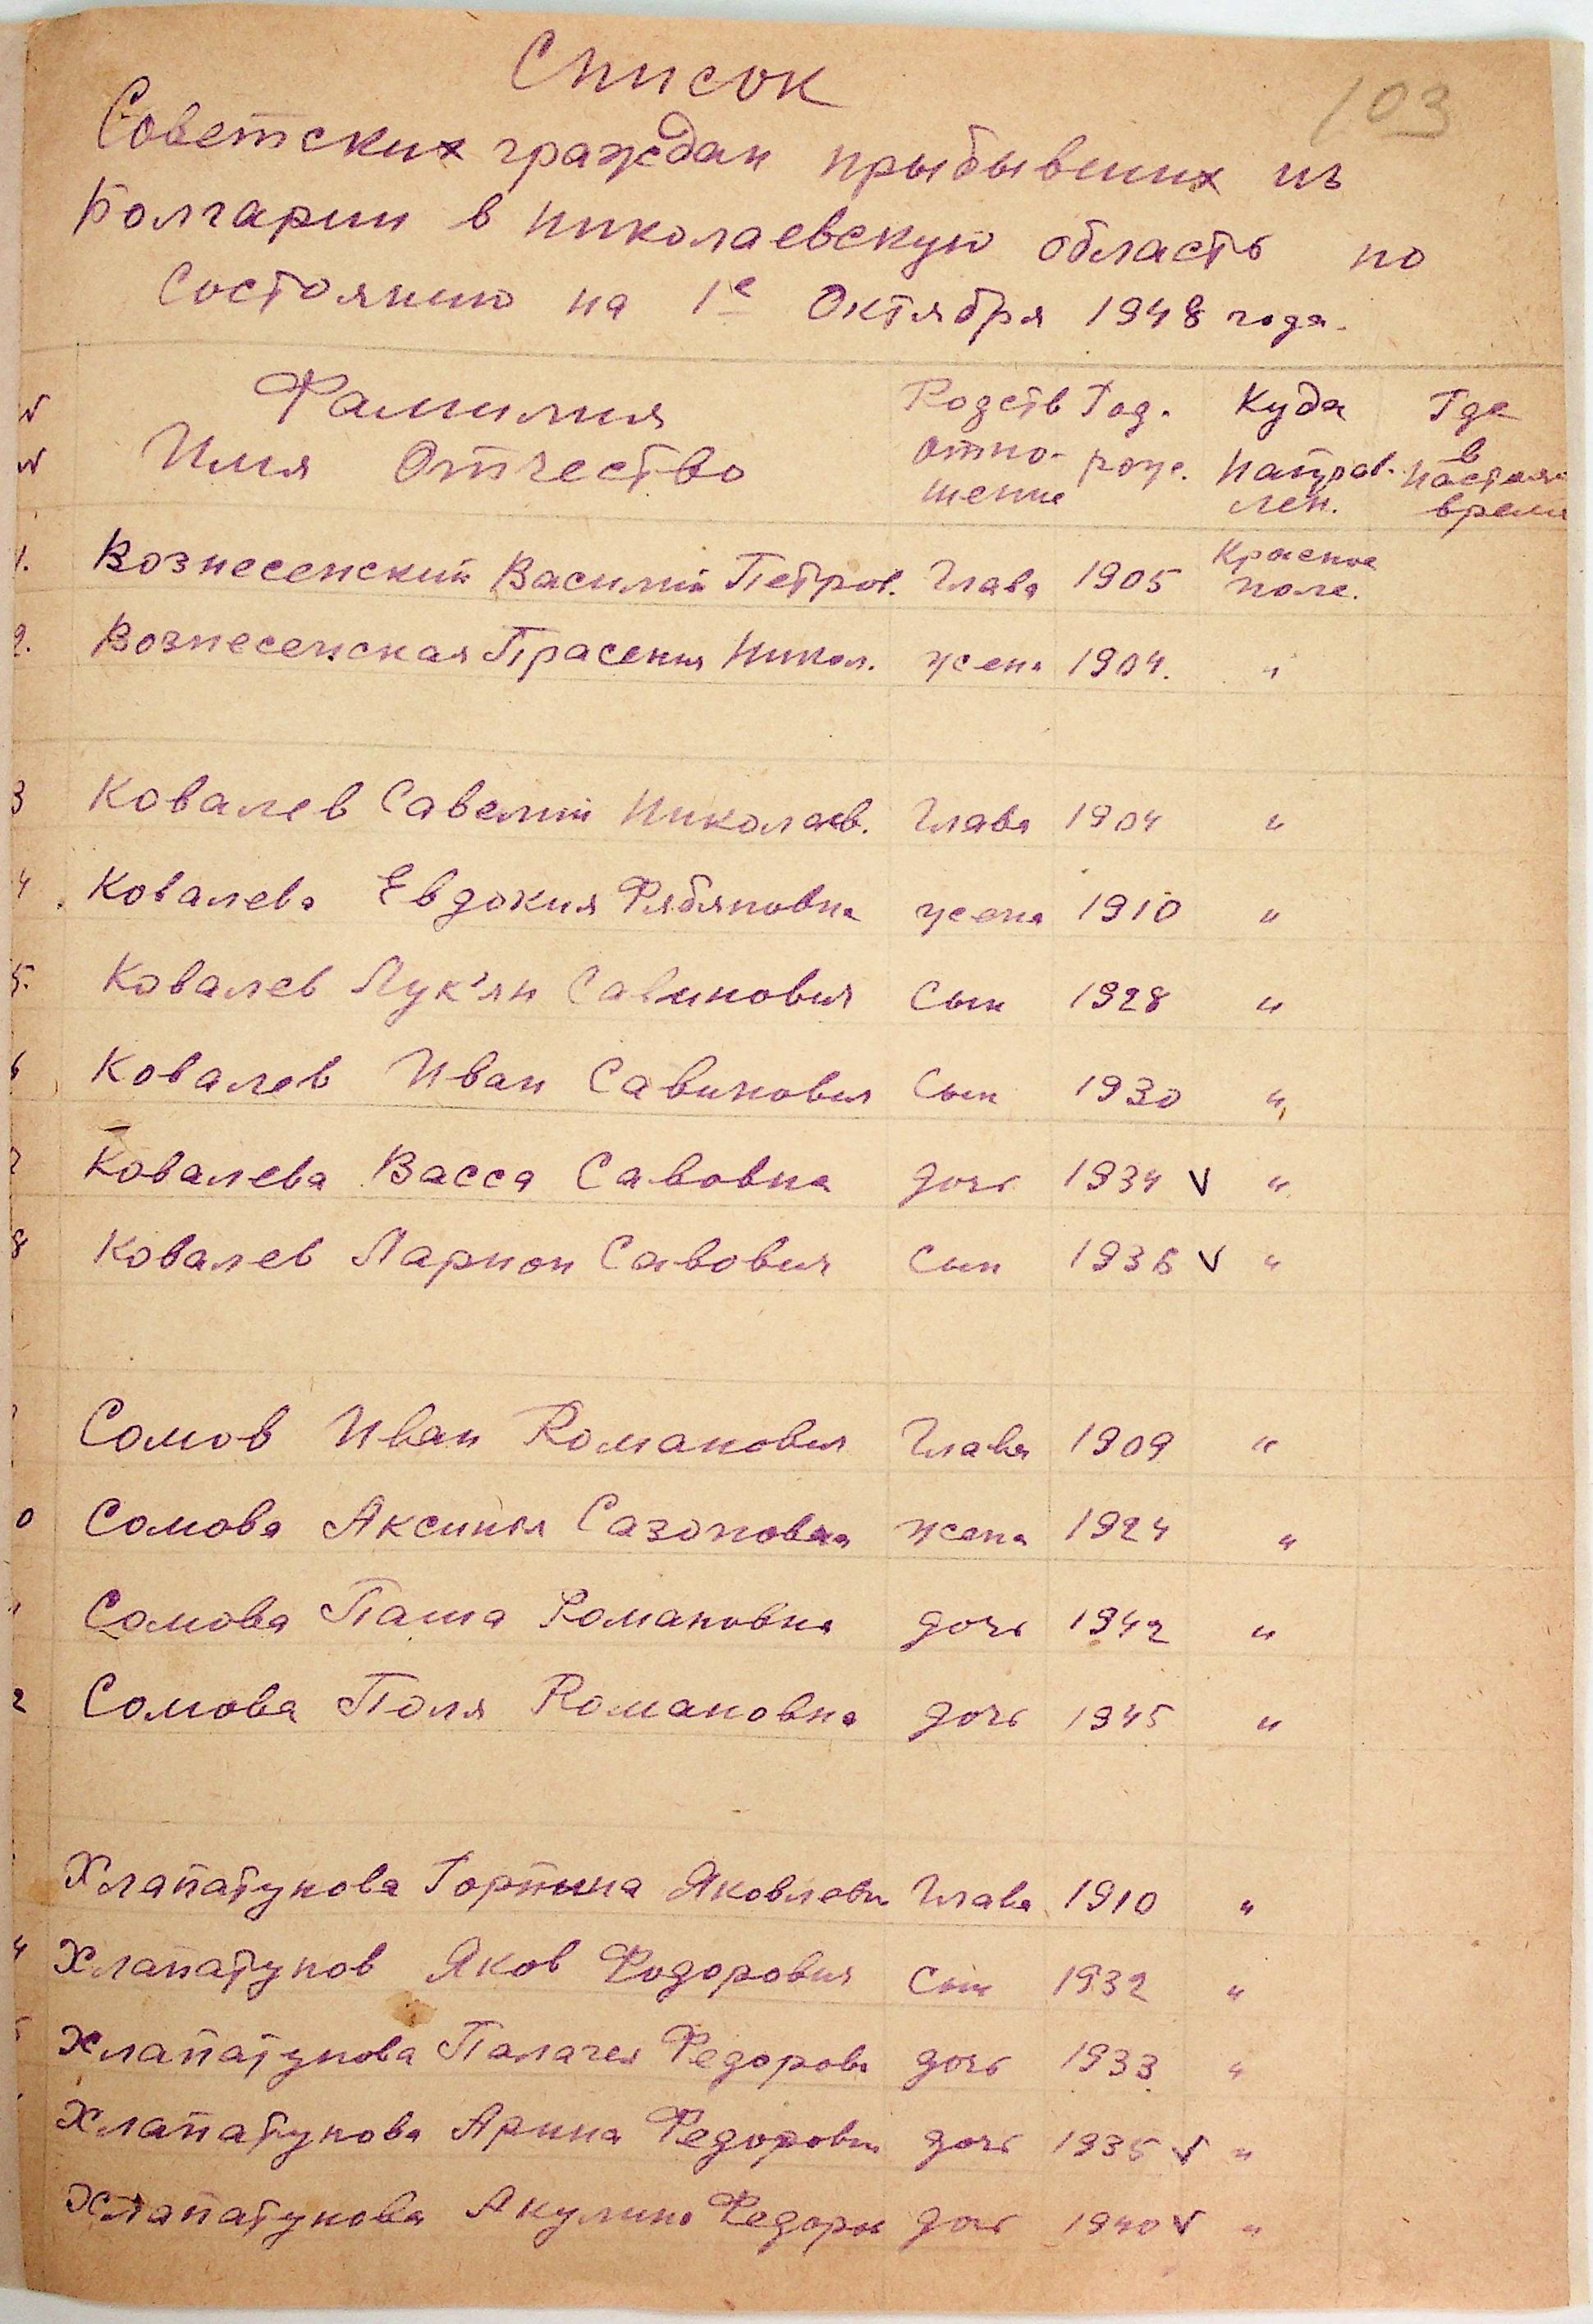 103
Список
Советских граждан прыбывших из
Болгарии в Николаевскую область по
Состоянию на 1е Октября 1948 года.
Фамилия Родств Год. Куда Где
Имя Отчество отно- рож. Направ- в
шение лен. настоя
время
1. Вознесенский Василий Петров. Глава 1905 Красное поле.
2. Вознесенская Прасения Никол. жена 1904. "
3 Ковалев Савелий Николаев. Глава 1904 "
4 Ковалева Евдокия Фябяновна жена 1910 "
5. Ковалев Лук'ян Савинович Сын 1928 "
6 Ковалев Иван Савинович Сын 1930 "
7 Ковалева Васса Савовна дочь 1934 V "
8 Ковалев Ларион Савович Сын 1936 V "
Сомов Иван Романович Глава 1909 "
0 Сомова Аксинья Сазоновна жена 1924 "
Сомова Паша Романовна дочь 1942 "
2 Сомова Поля Романовна дочь 1945 "
Хлапатунова Горпина Яковлевн Глава 1910 "
4 Хлапатунов Яков Фодорович Сын 1932 "
Хлапатунова Палагея Федоров дочь 1933 "
Хлапатунова Арина Федоровн дочь 1935 V "
Хлапатунова Акулина Федоров дочь 1940 V "